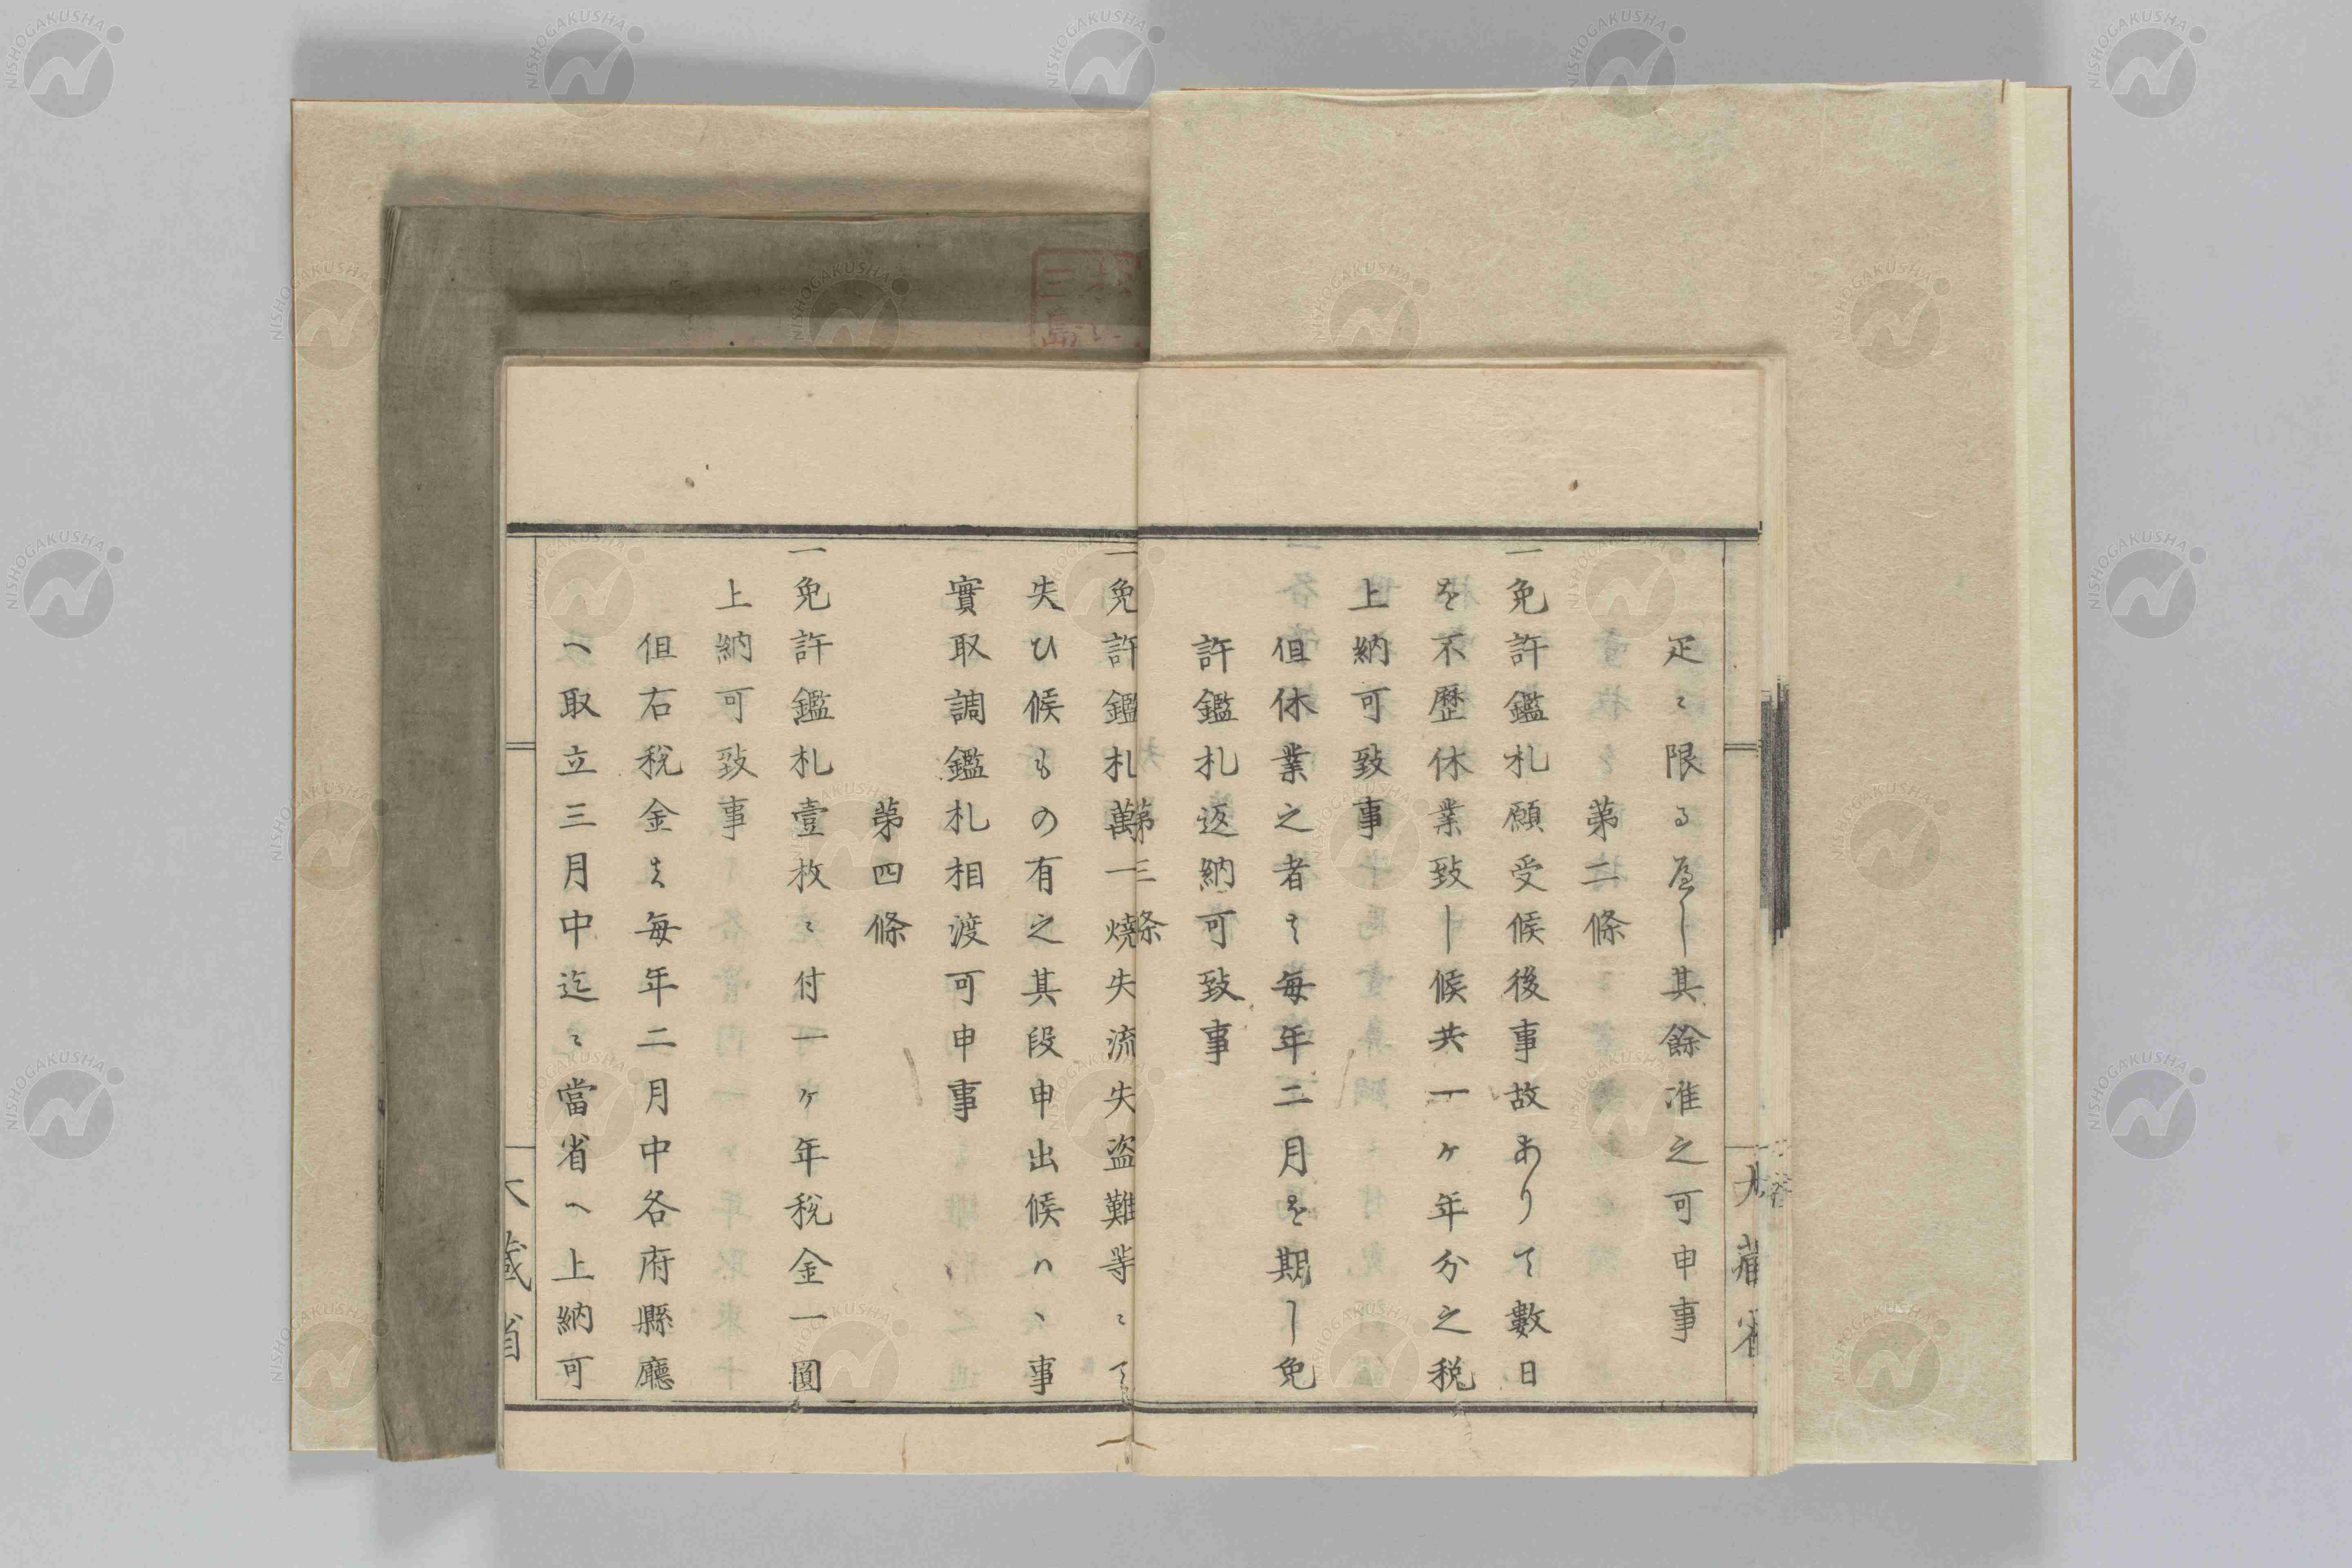 疋ニ限るへし其餘准之可申事
第二條
一免許鑑札願受候後事故ありて數日
を不歴休業致し候共一ヶ年分之税
上納可致事
但休業之者は毎年二月を期し免
許鑑札返納可致事
第三條
一免許鑑札萬一燒失流失盗難等ニて
失ひ候もの有之其段申出候ハヽ事
實取調鑑札相渡可申事
第四條
一免許鑑札壹枚ニ付一ヶ年税金一圓
上納可致事
但右税金は毎年二月中各府縣廳
へ取立三月中迄ニ當省へ上納可
大藏省
大藏省
三島
NISHOGAKUSHA